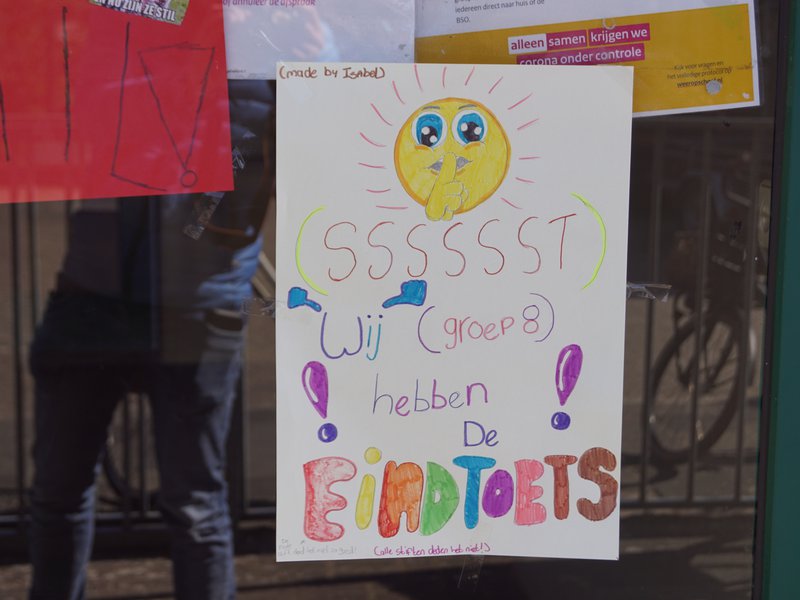 NU ZIJN ZE STIL
of annuleer de afspraak
iedereen direct naar huis of de
BSO.
alleen samen krijgen we
corona onder controle
Kijk voor vragen en
het volledige protocol op
(made by Isabel)
(SSSSSST)
Wij (groep 8)
! hebben !
De
EINDTOETS
(alle stiften deden het niet!)